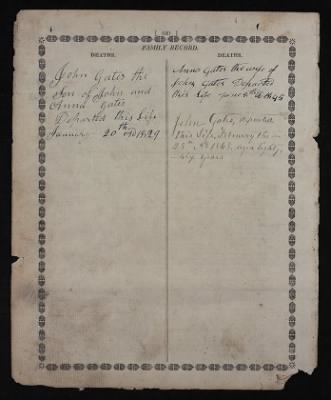 FAMILY RECORD.
DEATHS.
John Gates the
Son of John and
Anna Gates
Departed this Life
January 20th AD 1829
DEATHS.
Anna Gates the wife of
John Gates Departed
this life
John Gates, departed
this life, the
25th AD 1863, aged eighty
six years